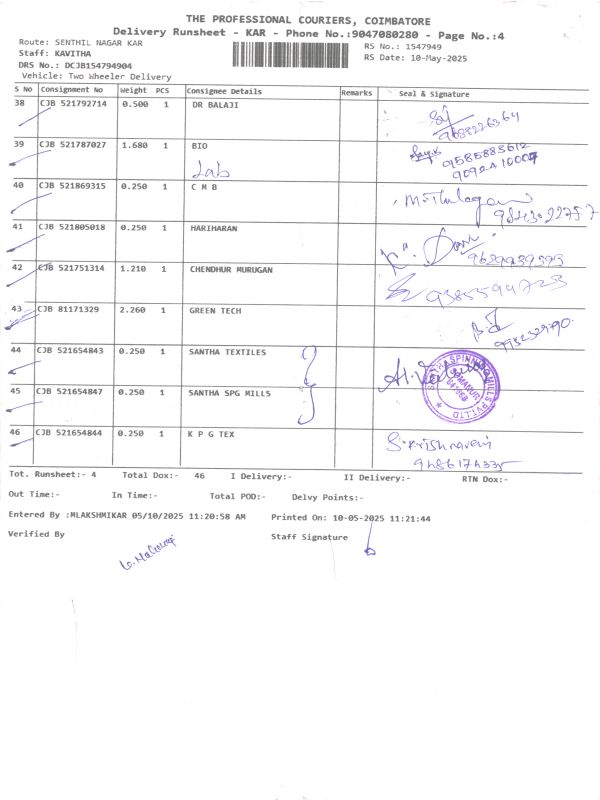 THE PROFESSIONAL COURIERS, COIMBATORE
Delivery Runsheet - KAR - Phone No.:9047080280 - Page No.:4
Route: SENTHIL NAGAR KAR
RS No.: 1547949
Staff: KAVITHA
RS Date: 10-May-2025
DRS No.: DCJB154794904
Vehicle: Two Wheeler Delivery
S No Consignment No Weight PCS Consignee Details Remarks Seal & Signature
38 CJB 521792714 0.500 1 DR BALAJI
9688226364
39 CJB 521787027 1.680 1 BIO
Lab
9585885612
9092410007
40 CJB 521869315 0.250 1 C M B
9843022757
41 CJB 521805018 0.250 1 HARIHARAN
9629939593
42 CJB 521751314 1.210 1 CHENDHUR MURUGAN
9385594723
43 CJB 81171329 2.260 1 GREEN TECH
44 CJB 521654843 0.250 1 SANTHA TEXTILES
45 CJB 521654847 0.250 1 SANTHA SPG MILL5
46 CJB 521654844 0.250 1 K P G TEX
S. Krishnaveni
Tot. Runsheet:- 4 Total Dox:- 46 I Delivery:- II Delivery:- RTN Dox:-
Out Time:- In Time:- Total POD:- Delvy Points:-
Entered By :MLAKSHMIKAR 05/10/2025 11:20:58 AM Printed On: 10-05-2025 11:21:44
Verified By Staff Signature